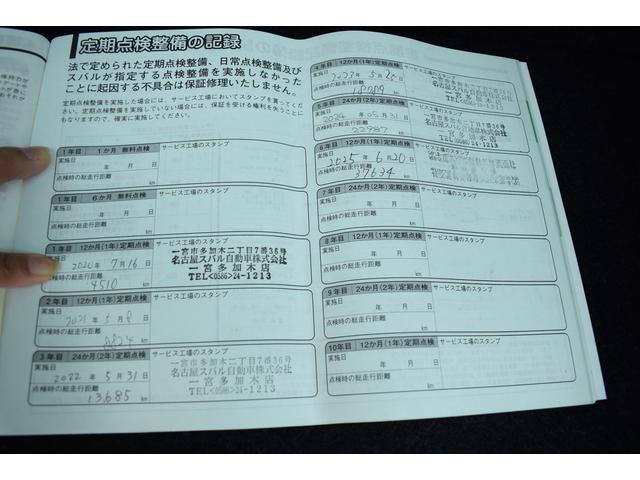 定期点検整備の記録
法で定められた定期点検整備、日常点検整備及び
スバルが指定する点検整備を実施しなかった
ことに起因する不具合は保証修理いたしません。
定期点検整備を実施した場合には、サービス工場においてスタンプを貰ってくだ
さい。定期点検整備を実施していない場合には、保証を受ける権利を失うことに
もなりますので、確実に実施してください。
1年目 1か月 無料点検
サービス工場のスタンプ
実施日
年 月 日
点検時の総走行距離
km
1年目 6か月 無料点検
サービス工場のスタンプ
実施日
年 月 日
点検時の総走行距離
km
1年目 12か月(1年)定期点検
サービス工場のスタンプ
実施日
2020年 7月16日
点検時の総走行距離
4510 km
一宮市多加木二丁目7番36号
名古屋スバル自動車株式会社
一宮多加木店
TEL<0586>24-1213
2年目 12か月(1年)定期点検
サービス工場のスタンプ
実施日
2021年 5月 8日
点検時の総走行距離
8824 km
3年目 24か月(2年)定期点検
サービス工場のスタンプ
実施日
2022年 5月31日
点検時の総走行距離
13,685 km
一宮市多加木二丁目7番36号
名古屋スバル自動車株式会社
一宮多加木店
TEL<0586>24-1213
4年目 12か月(1年)定期点検
サービス工場のスタンプ
実施日
点検時の総走行距離
名古屋スバル自動車株式会社
一宮多加木店
5年目 24か月(2年)定期点検
サービス工場のスタンプ
実施日
2024年 05月31日
点検時の総走行距離
22987 km
6年目 12か月(1年)定期点検
サービス工場のスタンプ
実施日
2025年 6月20日
点検時の総走行距離
37634 km
7年目 24か月(2年)定期点検
サービス工場のスタンプ
実施日
年 月 日
点検時の総走行距離
km
8年目 12か月(1年)定期点検
サービス工場のスタンプ
実施日
年 月 日
点検時の総走行距離
km
9年目 24か月(2年)定期点検
サービス工場のスタンプ
実施日
年 月 日
点検時の総走行距離
km
10年目 12か月(1年)定期点検
サービス工場のスタンプ
実施日
年 月 日
点検時の総走行距離
km